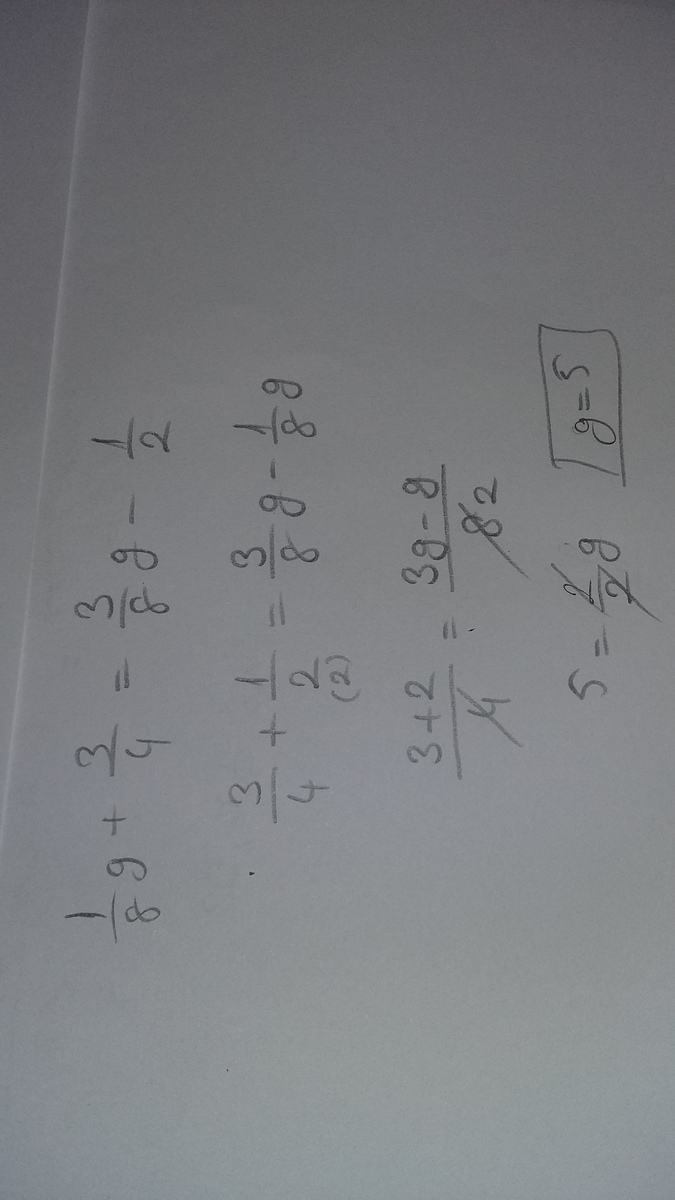 1/8 g + 3/4 = 3/8 g - 1/2
3/4 + 1/2 (2) = 3/8 g - 1/8 g
3+2/4 = 3g-g/8 2
5 = 2/2 g
g=5